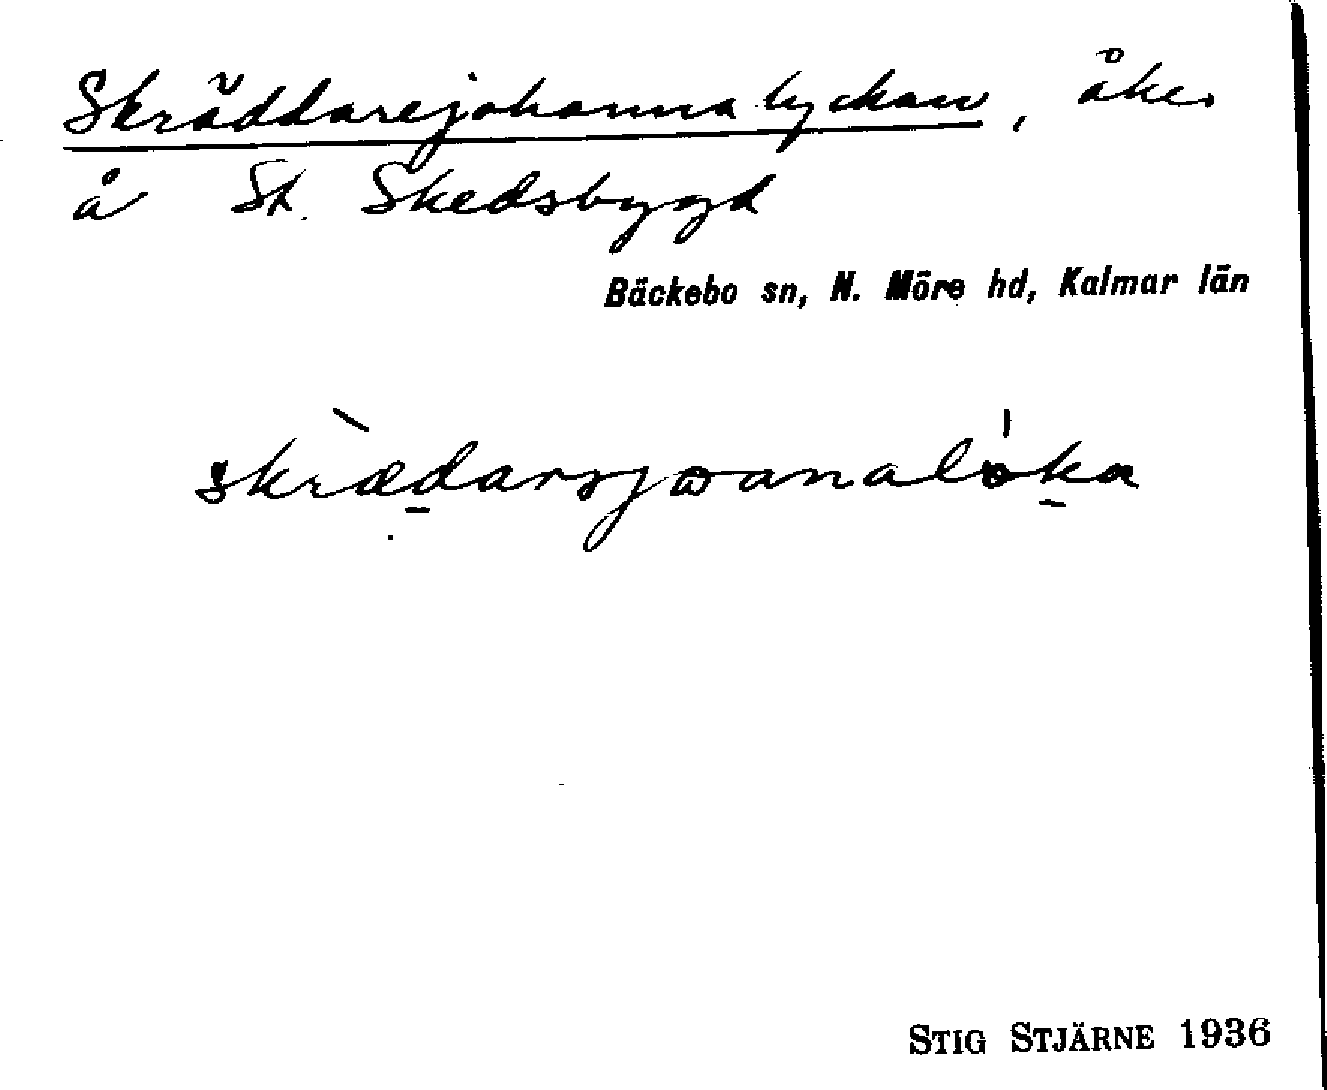 Skräddarejohannalyckan, åker
å St. Skedsbygd
Bäckebo sn, N. Möre hd, Kalmar län
STIG STJÄRNE 1936